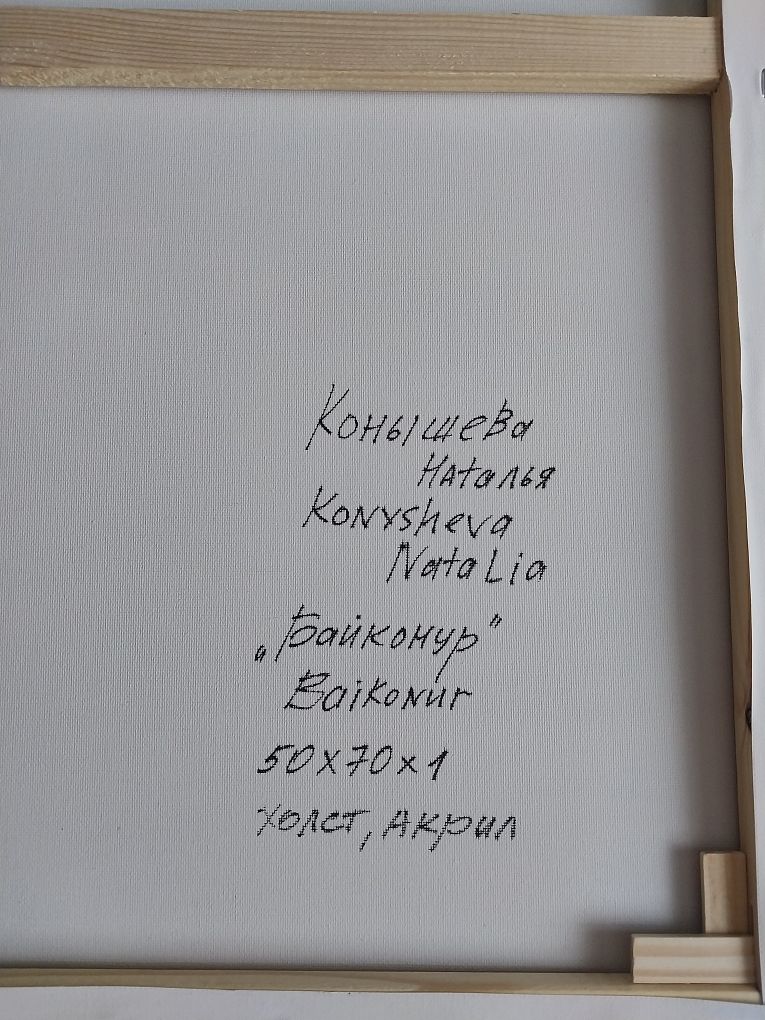 Конышева
Наталья
Konysheva
Natalia
„Байконур"
Baikonur
50x70x1
холст, акрил